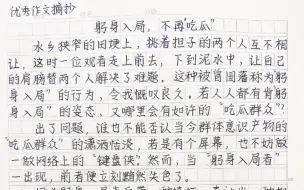 优秀作文摘抄
躬身入局，不再“吃瓜”
水乡狭窄的田埂上，挑着担子的两个人互不相
让，这时一位观者走上前去，下到泥水中，让自己
的肩膀替两个人解决了难题。这种被曾国藩称为“躬
身入局”的行为，令我慨叹良久。若人人都有肯躬
身入局”的姿态，又哪里会有如许的“吃瓜群众”？
出了问题，谁也不能否认当今群体意识产物的
“吃瓜群众”的潇洒恬淡，若是有个屏幕，也不妨做
一做网络上的“键盘侠”。然而，当“躬身入局者”
一出现，前者便立刻黯然失色了。